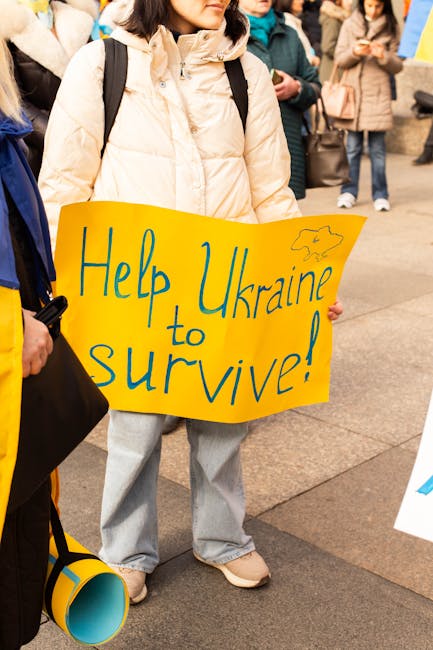 Help Ukraine
to
survive!